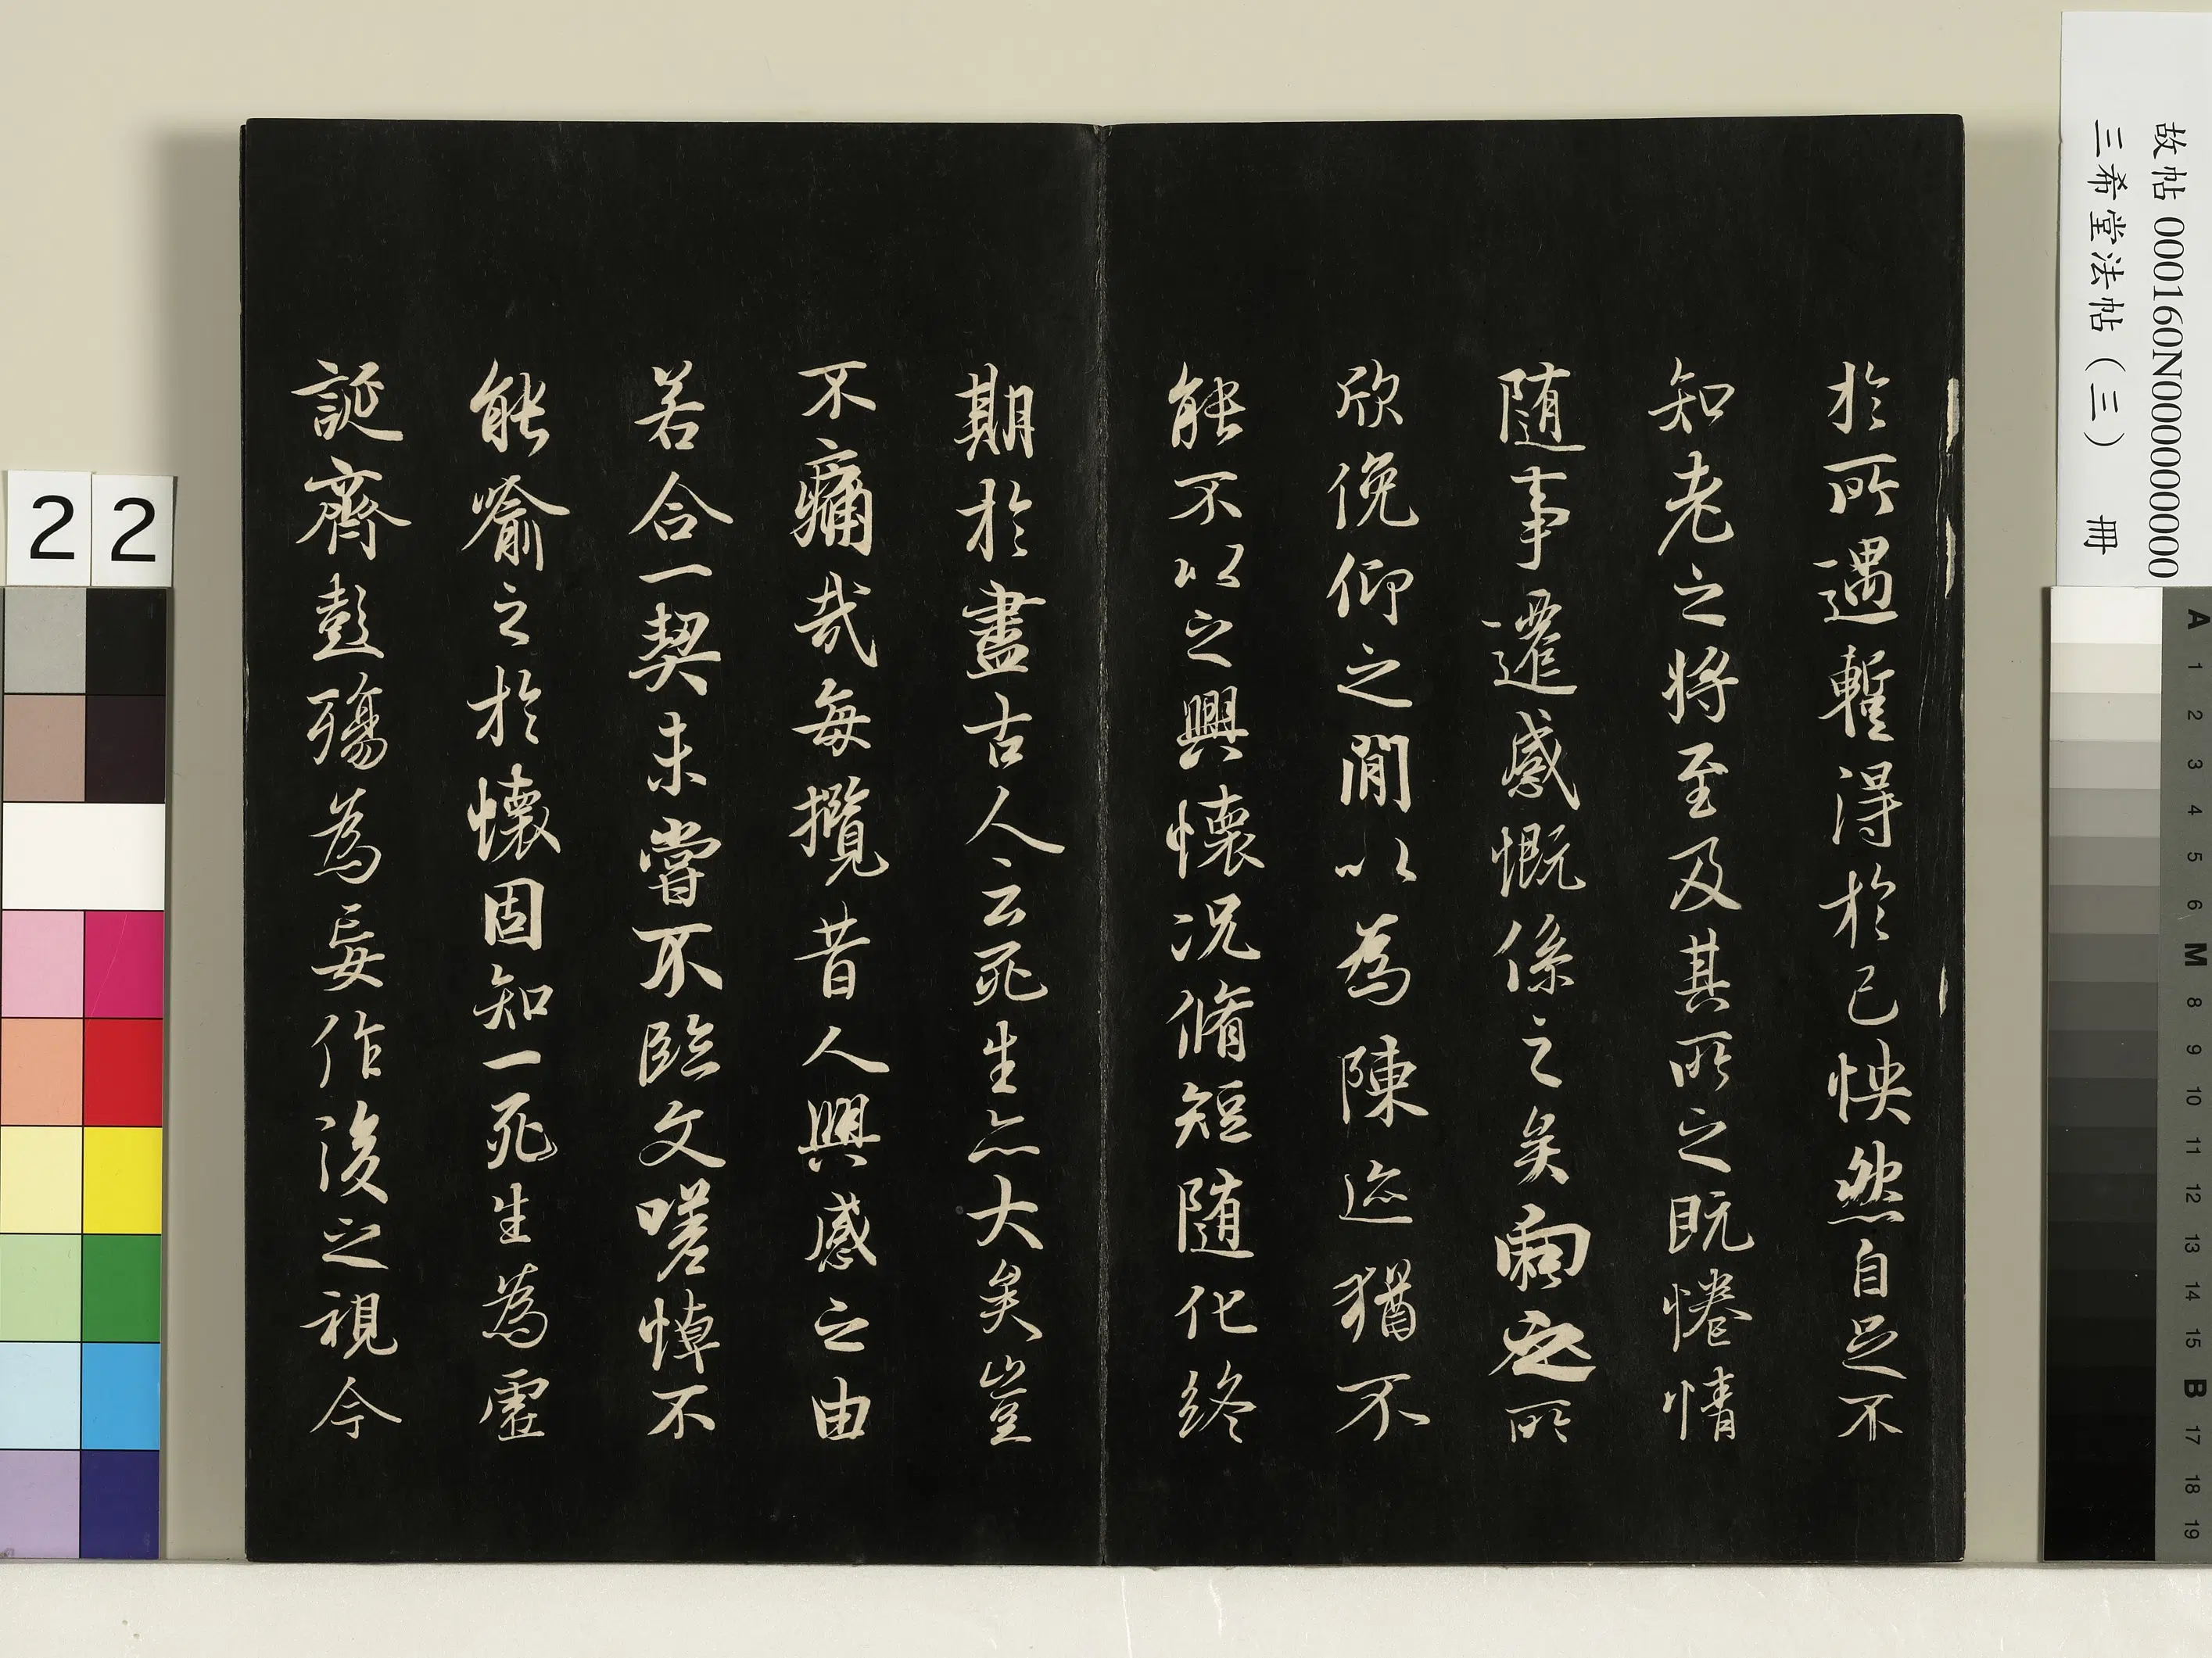 於所遇蹔得於己怏然自足不
知老之將至及其所之既惓情
随事遷感慨係之矣向之所
欣俛仰之閒以為陳迹猶不
能不以之興懷況脩短随化終
期於盡古人云死生亦大矣豈
不痛哉每攬昔人興感之由
若合一契未嘗不臨文嗟悼不
能喻之於懷固知一死生為虛
誕齊彭殤為妄作後之視今
故帖 000160N000000000
三希堂法帖（三） 冊
22
A 1 2 3 4 5 6 M 8 9 10 11 12 13 14 15 B 17 18 19